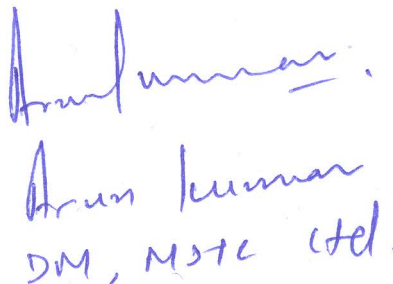 Arunkumar.
Arun kumar
DM, MSTC Ltd.